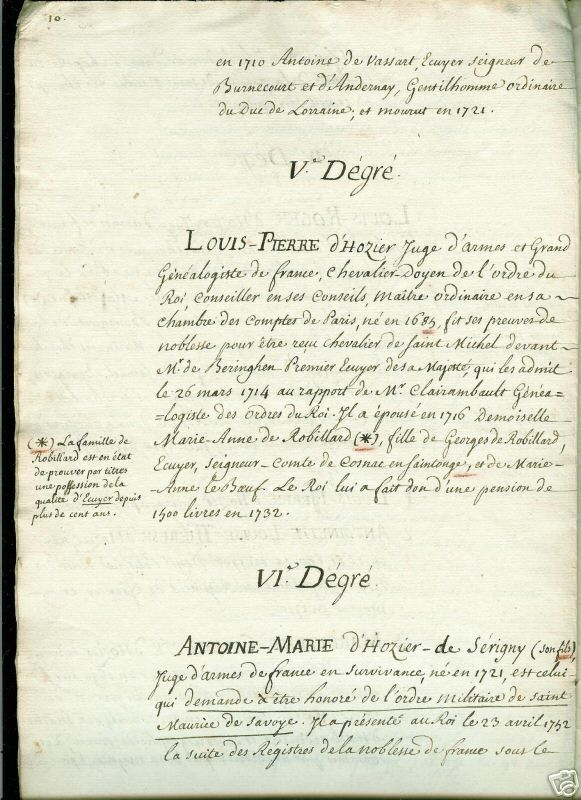 10.
en 1710 Antoine de Vassart, Ecuyer seigneur de
Burnecourt et d'Andernay, Gentilhomme ordinaire
du Duc de Lorraine, et mourut en 1721.
V.e Dégré.
LOUIS-PIERRE d'Hozier Juge d'armes et Grand
Généalogiste de france, Chevalier Doyen de l'ordre du
Roi, Conseiller en ses Conseils, Maître ordinaire en sa
chambre des Comptes de Paris, né en 1685, fit ses preuves de
noblesse pour être reçu Chevalier de Saint Michel devant
Mr. de Beringhen Premier Ecuyer de sa Majesté, qui les admit
le 26 mars 1714 au rapport de Mr. Clairambault Généa=
=logiste des ordres du Roi. Il a épousé en 1716 Demoiselle
Marie-Anne de Robillard (*), fille de Georges de Robillard,
Ecuyer, Seigneur-Comte de Cosnac en Saintonge, et de Marie-
Anne le Bœuf. Le Roi lui a fait don d'une pension de
1500 livres en 1732.
(*) La famille de
Robillard est en état
de prouver par titres
une possession de la
qualité d'Ecuyer depuis
plus de cent ans.
VI.e Dégré.
ANTOINE-MARIE d'Hozier-de Sérigny (son fils),
Juge d'armes de france en survivance, né en 1721, est celui
qui demande à être honoré de l'ordre militaire de saint
Maurice de Savoye. Il a présenté au Roi le 23 avril 1752
la suite des Régistres de la noblesse de france sous le